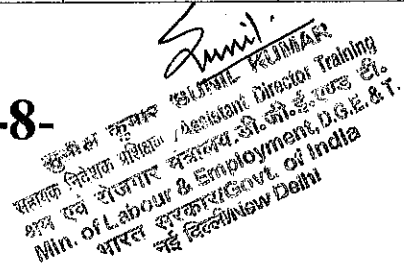 Sunil.
-8-
सुनील कुमार SUNIL KUMAR
सहायक निदेशक प्रशिक्षण /Assistant Director Training
श्रम एवं रोजगार मंत्रालय.डी.जी.ई.एण्ड टी.
Min. of Labour & Employment, D.G.E. & T.
भारत सरकार/Govt. of India
नई दिल्ली/New Delhi